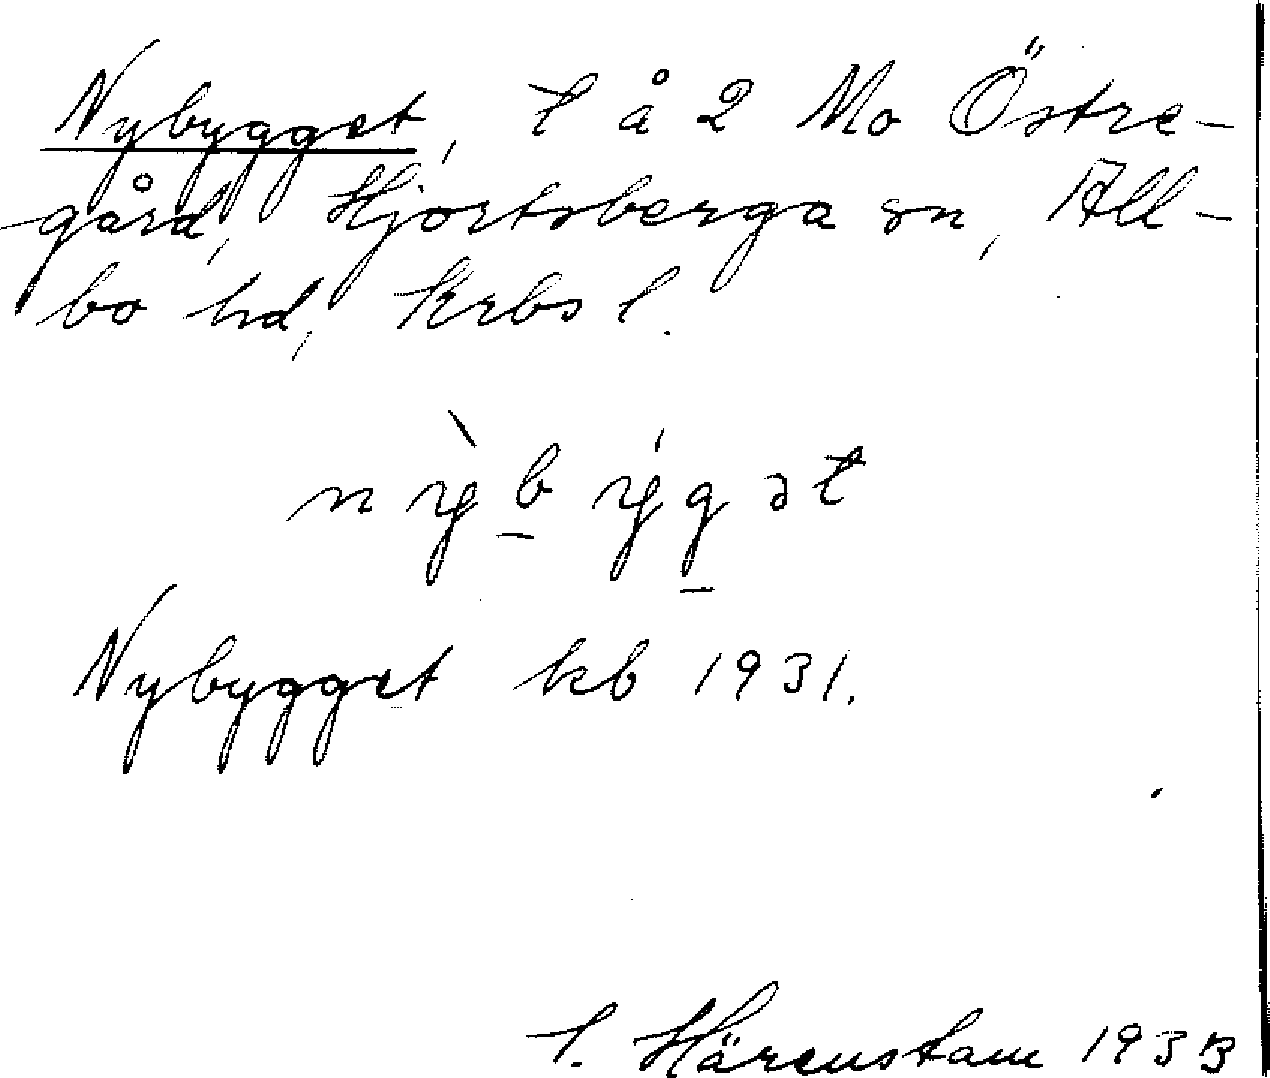 Nybygget, t å 2 Mo Östre-
gård, Hjortsberga sn, All-
bo hd, Krbs l.
nỳbýgət
Nybygget kb 1931.
Härenstam 1933